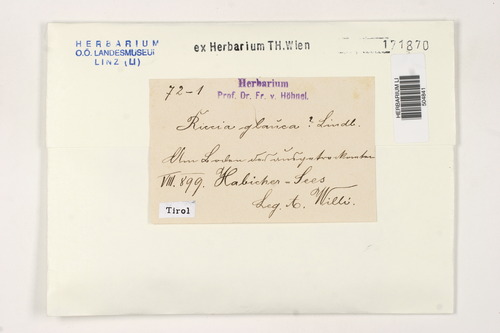 HERBARIUM
O.Ö. LANDESMUSEUM
LINZ (LI)
ex Herbarium TH.Wien
171870
HERBARIUM LI
504841
72-1
Herbarium
Prof. Dr. Fr. v. Höhnel.
Riccia glauca? Lindb.
Am Boden des ausgetrockneten
VIII. 899. Habicher-Sees
Leg. A. Willi.
Tirol